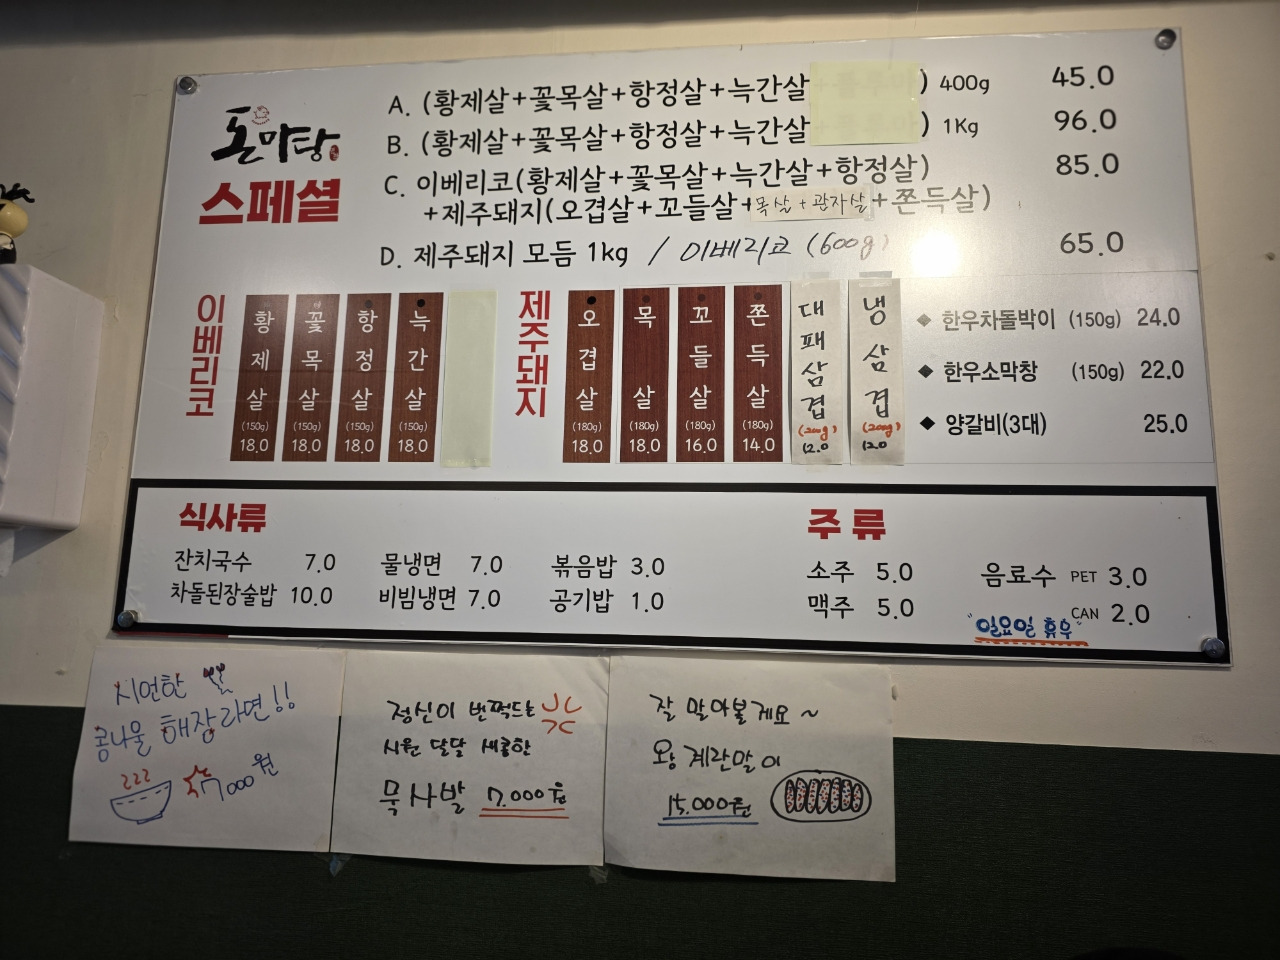 돈마탕
스페셜
A. (황제살+꽃목살+항정살+늑간살 ) 400g 45.0
B. (황제살+꽃목살+항정살+늑간살 ) 1Kg 96.0
C. 이베리코(황제살+꽃목살+늑간살+항정살) 85.0
+제주돼지(오겹살+꼬들살+목살+관자살+쫀득살)
D. 제주돼지 모듬 1kg / 이베리코 (600g) 65.0
이베리코
황제살 (150g) 18.0
꽃목살 (150g) 18.0
항정살 (150g) 18.0
늑간살 (150g) 18.0
제주돼지
오겹살 (180g) 18.0
목살 (180g) 18.0
꼬들살 (180g) 16.0
쫀득살 (180g) 14.0
대패삼겹 (200g) 12.0
냉삼겹 (200g) 12.0
◆ 한우차돌박이 (150g) 24.0
◆ 한우소막창 (150g) 22.0
◆ 양갈비(3대) 25.0
식사류
잔치국수 7.0 물냉면 7.0 볶음밥 3.0
차돌된장술밥 10.0 비빔냉면 7.0 공기밥 1.0
주류
소주 5.0 음료수 PET 3.0
맥주 5.0 CAN 2.0
"일요일 휴무"
시언한
콩나물 해장라면!!
7000원
정신이 번쩍드는
시원 달달 새콤한
묵사발 7.000원
잘 말아볼게요~
왕 계란말이
15.000원